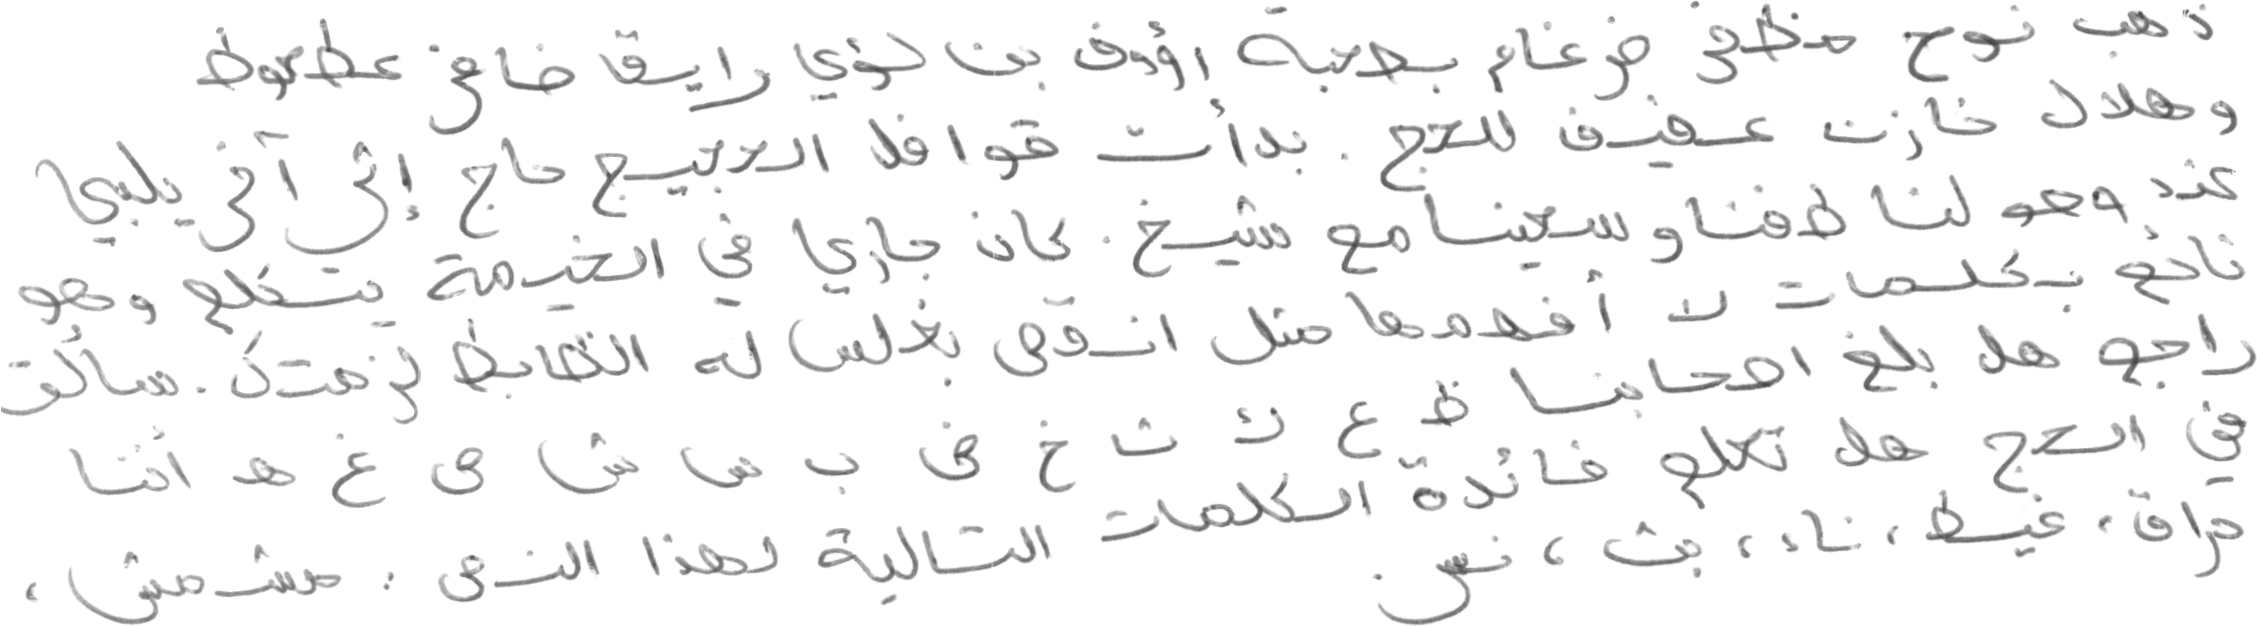 ذهب نوح مظفر ضرغام بصحبة رؤوف بن لؤي رايق ضافر عظعوظ
وهلال خازن عفيف للحج . بدأت قوافل الحجيج حاج إثر آخر يلبي
عند وهو لنا طفنا وسعينا مع شيخ . كان جاري في الخيمة يتكلم وهو
نائم بكلمات لا أفهمها مثل انقص بغلس له الظابط لزمتك . سألت
راجح هل بلغ اصحابنا ظ ع ك ث خ ف ب س ش ص غ ه اثنا
في الحج هل تعلم فائدة الكلمات التالية لهذا النص : مشمش ،
مراق ، غيظ ، ناء ، بث ، نس .